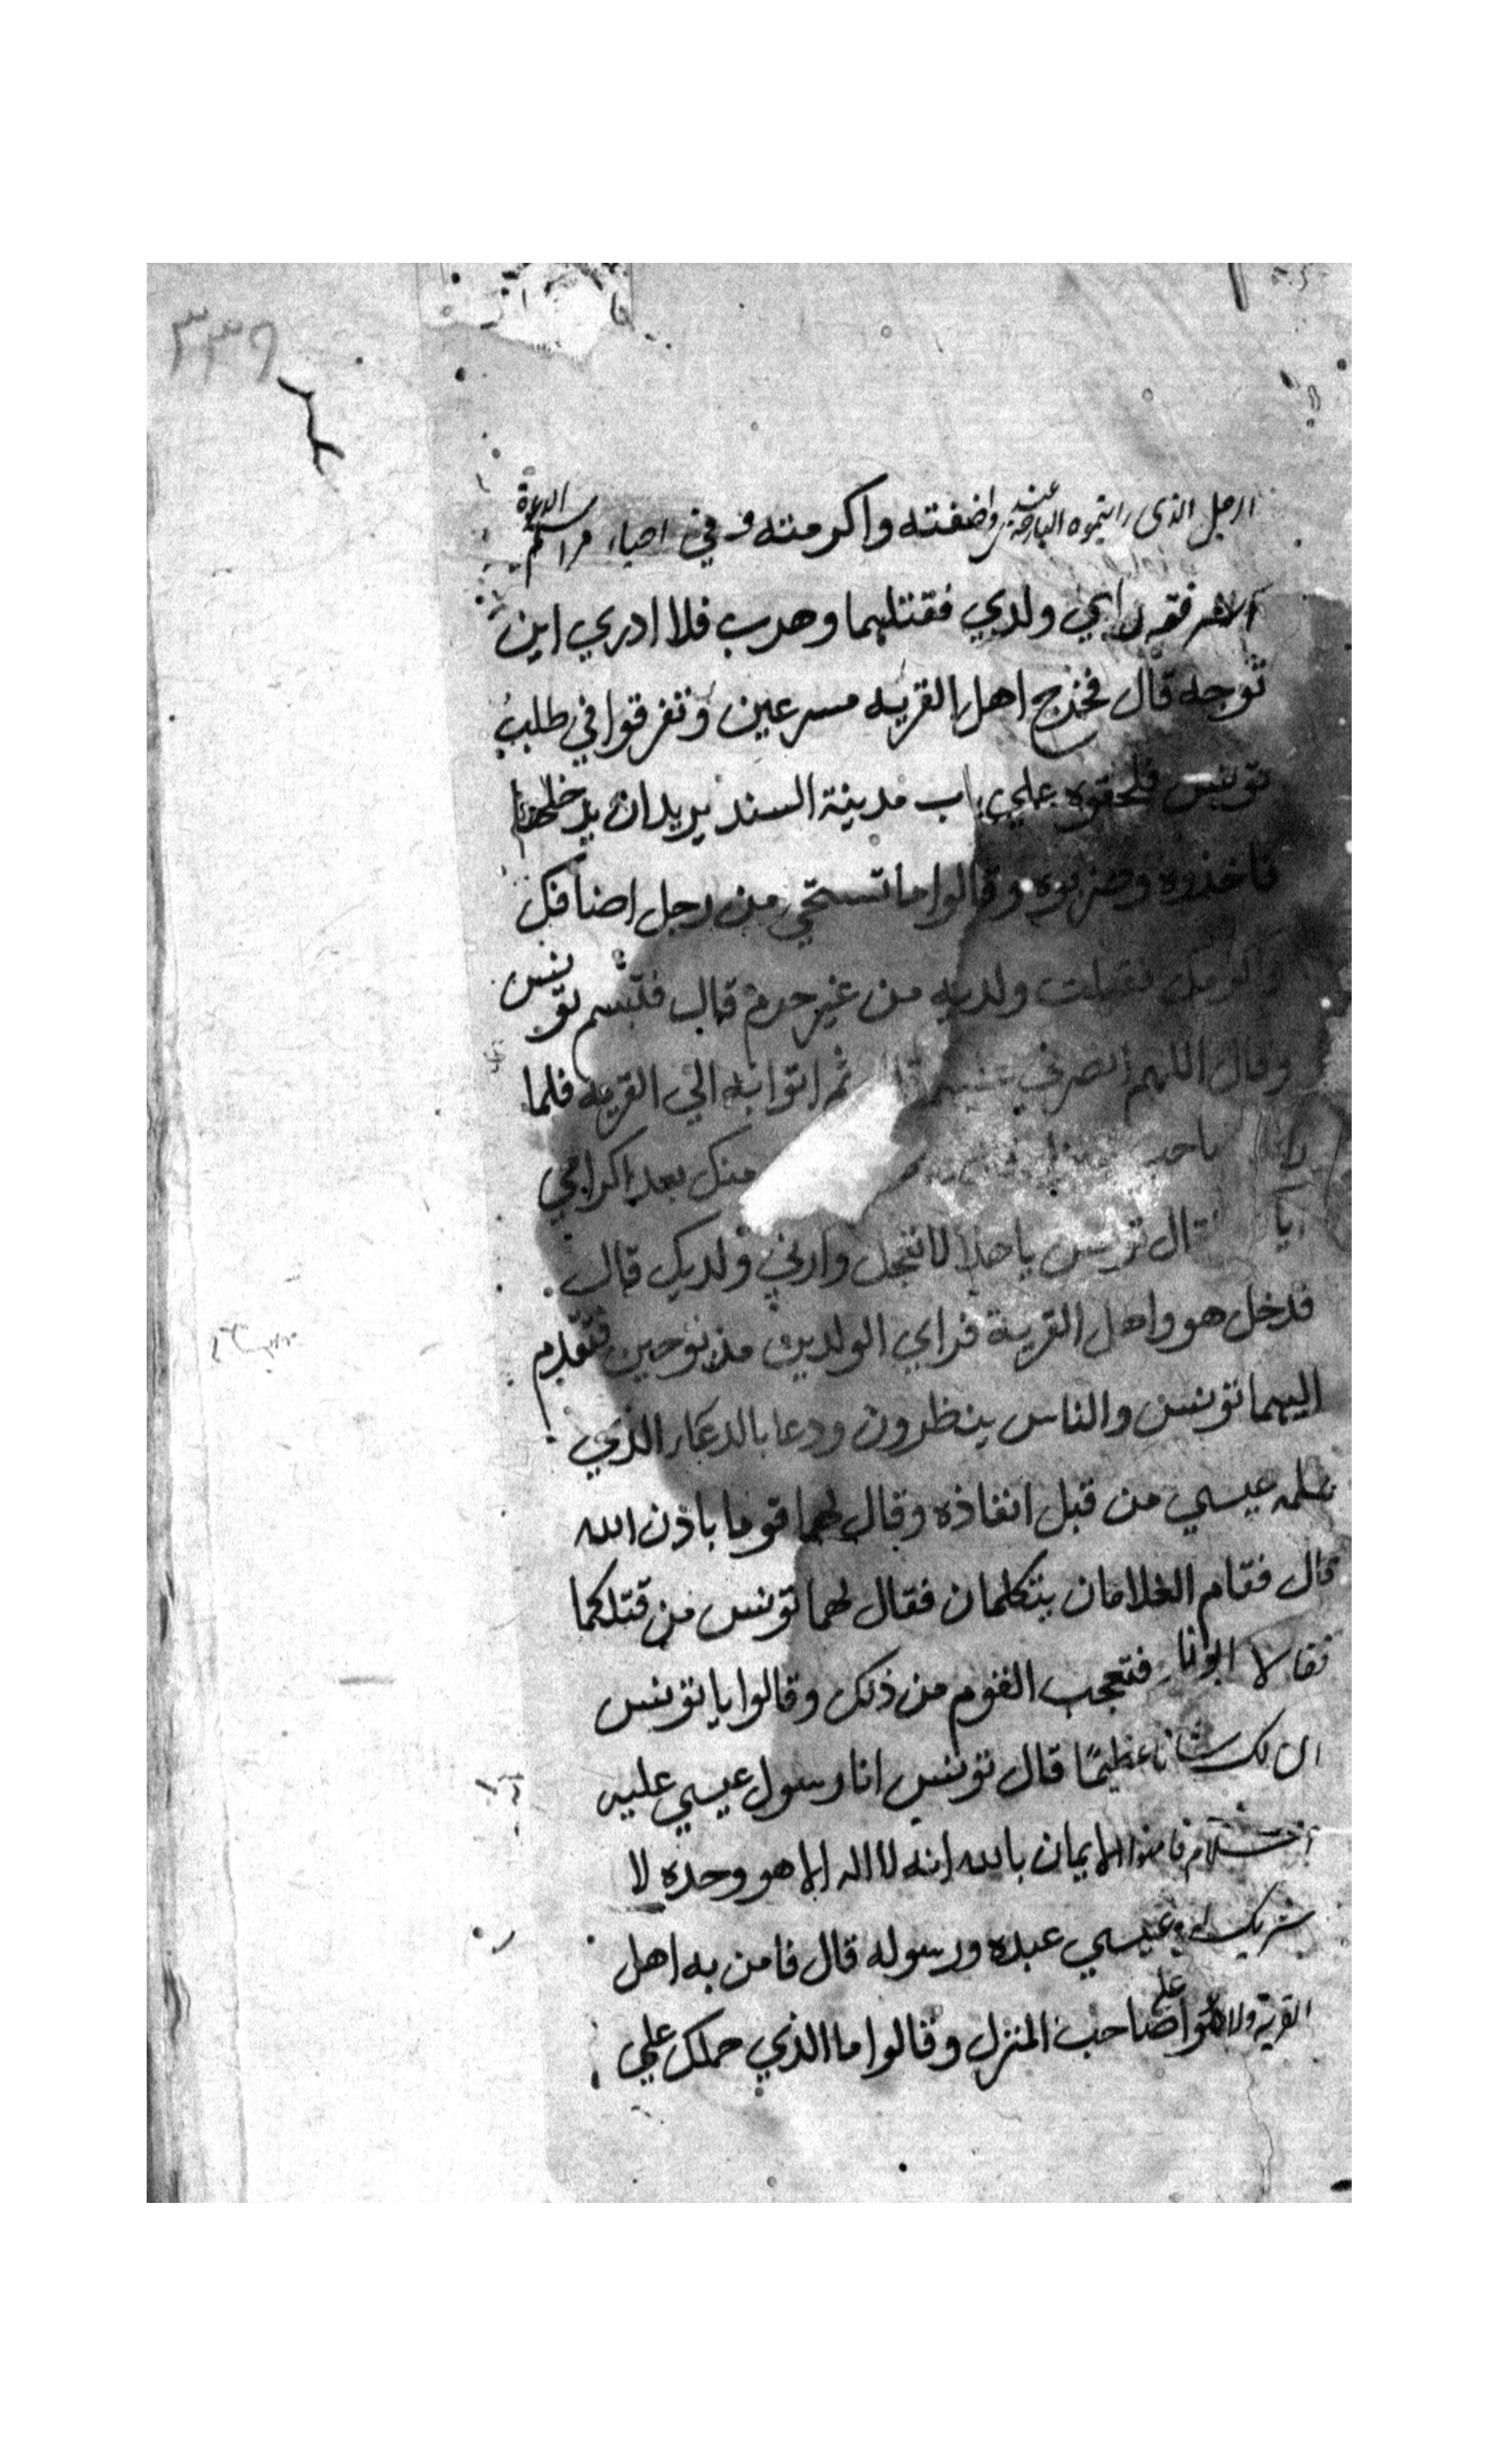 ٣٣٩
الرجل الذى رايتموه البارحة عندى واضفته واكرمته وفي احياء
فقتلهما وهرب فلا ادري اين
توجه قال فخرج اهل القريه مسرعين وتفرقوا في طلب
تونس فلحقوه علي باب مدينة السند يريد ان يدخلها
فاخذوه وضربوه وقالوا ما تستحي من رجل اضافك
واكرمك فقتلت ولديه من غير جرم قال فتبسم تونس
وقال اللهم انصرني ثم اتوا به الي القريه فلما
منك بعد اكرامي
قال تونس يا هذا لا تعجل وارني ولديك قال
فدخل هو واهل القرية فراي الولدين مذبوحين فتقدم
اليهما تونس والناس ينظرون ودعا بالدعاء الذي
علمه عيسي من قبل انفاذه وقال لهما قوما باذن الله
قال فقام الغلامان يتكلمان فقال لهما تونس من قتلكما
فقالا ابونا فتعجب القوم من ذلك وقالوا يا تونس
ان لك شانا عظيمًا قال تونس انا رسول عيسي عليه
السلام فامنوا الايمان بالله انه لا اله الا هو وحده لا
شريك له وعيسي عبده ورسوله قال فامن به اهل
القرية ولاموا علي صاحب المنزل وقالوا ما الذي حملك علي